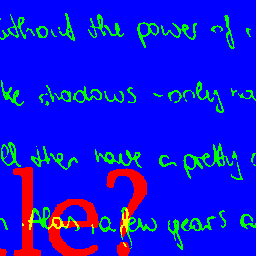 without the power of
ke shadows - only
ll then have a pretty
le?
Alas, a few years a